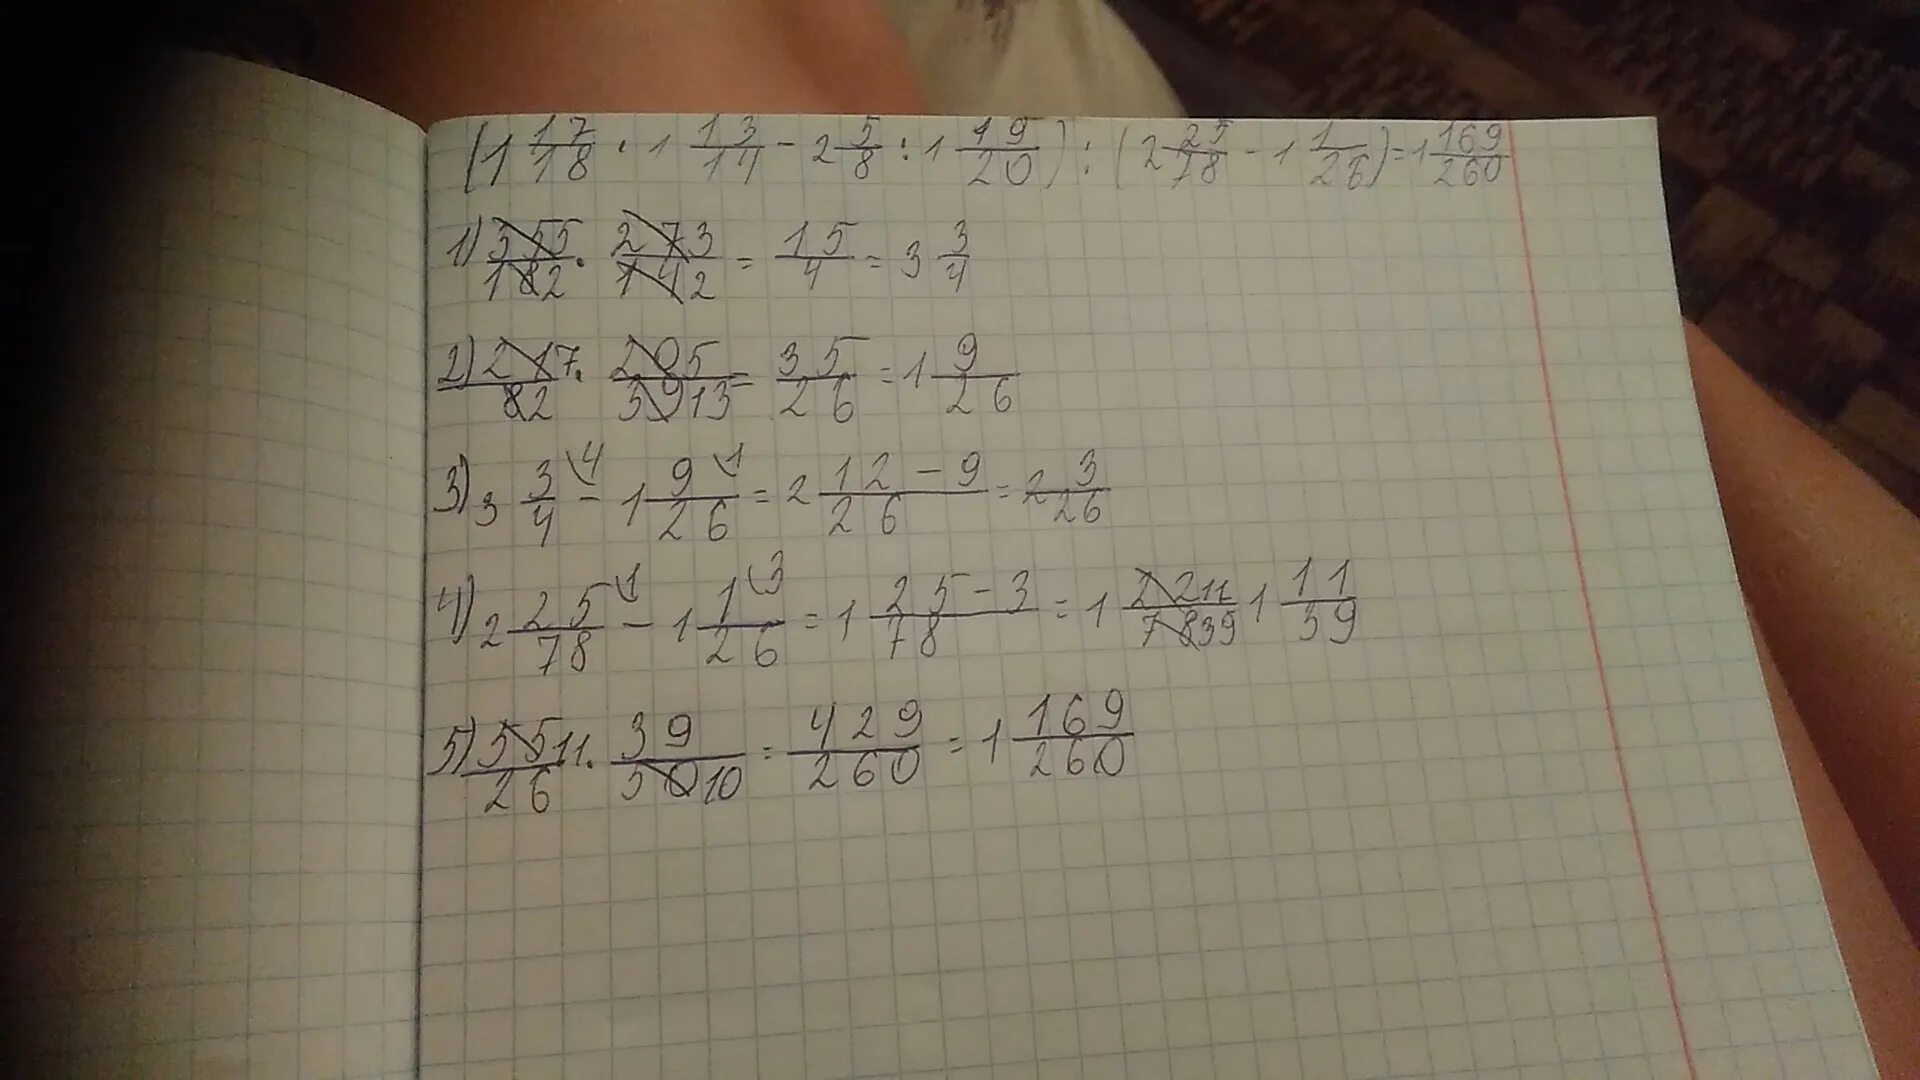 (1 17/18 · 1 13/14 - 2 5/8 : 1 19/20) : (2 25/78 - 1 1/26) = 1 169/260
1) 35 5/18 2 · 27 3/14 2 = 15/4 = 3 3/4
2) 21 7/8 2 · 20 5/39 13 = 35/26 = 1 9/26
3) 3 3/4 \4 - 1 9/26 \1 = 2 12-9/26 = 2 3/26
4) 2 25/78 \1 - 1 1/26 \3 = 1 25-3/78 = 1 22 11/78 39 1 11/39
5) 55 11/26 · 39/50 10 = 429/260 = 1 169/260